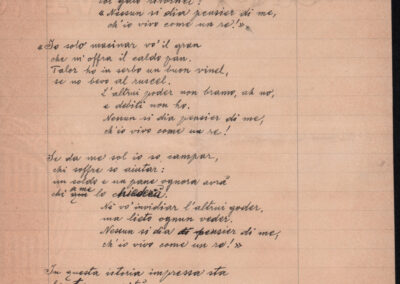 coi gaio ritornel:
"Nessun si dia pensier di me,
ch'io vivo come un re!"»
«Io solo macinar vo' il gran
che m'offra il caldo pan.
Talor ho in serbo un buon vinel,
se no bevo al ruscel.
L'altrui poder non bramo, ah no,
e debiti non ho.
Nessun si dia pensier di me,
ch'io vivo come un re!
Se da me sol io so, campar,
chi soffre so aiutar:
un soldo e un pane ognora avrà
chi a me lo chiederà!
No vo' invidiar l'altrui goder,
ma lieto ognun veder.
Nessun si dia pensier di me,
ch'io vivo come un re!»
In questa istoria impressa sta